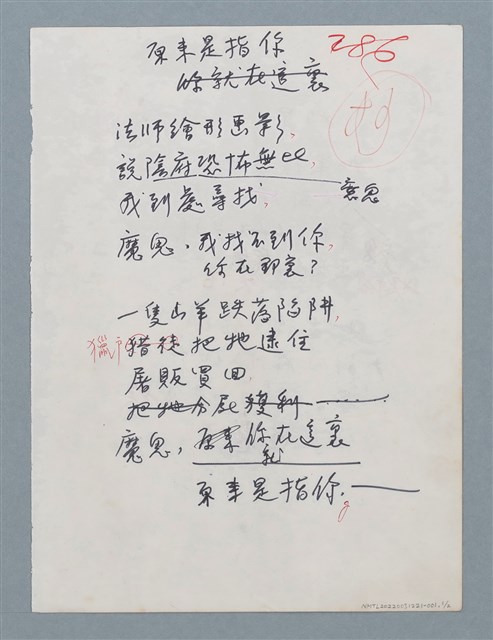 原來是指你
你就在這裏
286
法師繪形畫影，
說陰府恐怖無比，
意思
我到處尋找，
魔鬼，我找不到你，
你在那裏？
一隻山羊跌落陷阱，
獵戶
猎徒把牠逮住
屠販買回
把牠分屍獲利——……
魔鬼，原來你在這裏
就
原來是指你。——